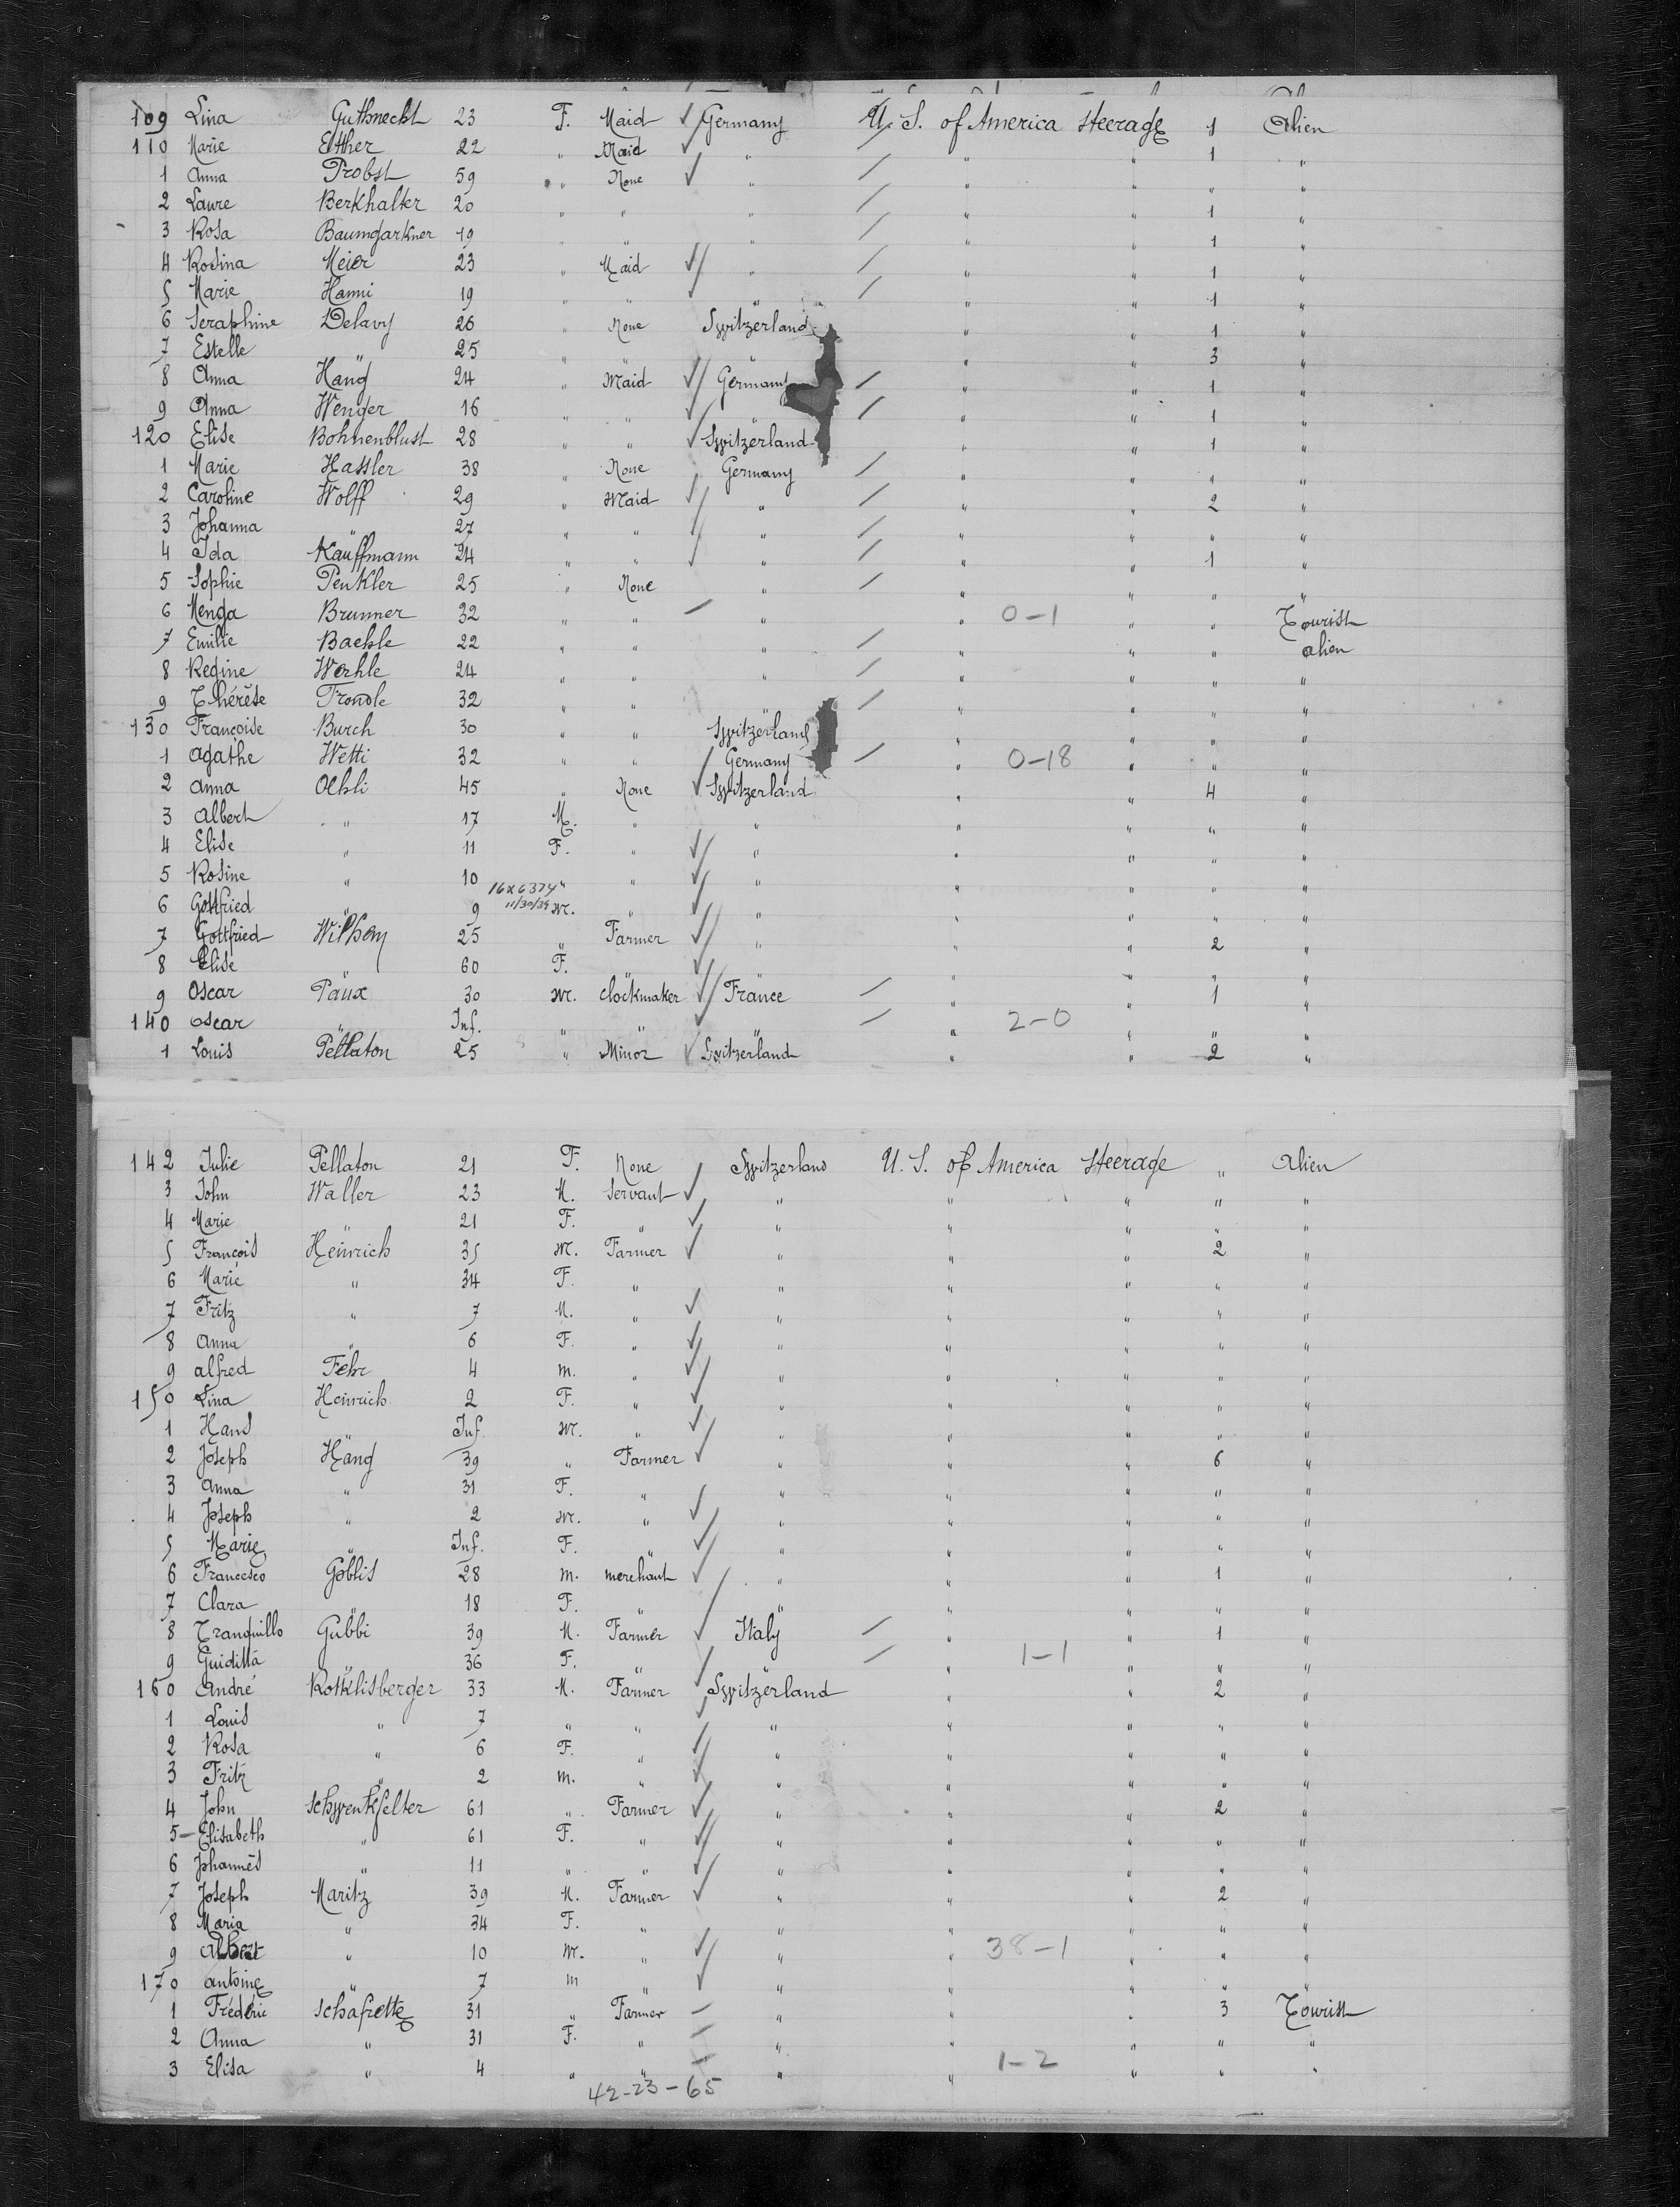 109 Lina Guthneckt 23 F. Maid Germany U. S. of America Steerage 1 Alien
110 Marie Etther 22 " Maid " " " 1 "
1 Anna Probst 59 " None " " " " "
2 Laure Berkhalter 20 " " " " " 1 "
3 Rosa Baumgarkner 19 " " " " " 1 "
4 Rosina Meier 23 " Maid " " " 1 "
5 Marie Hanni 19 " " " " 1 "
6 Seraphine Delavy 26 " None Switzerland " " 1 "
7 Estelle " 25 " " " " " 3 "
8 Anna Hang 24 " Maid Germany " " 1 "
9 Anna Wenger 16 " " " " " 1 "
120 Elise Bohnenblust 28 " " Switzerland " " 1 "
1 Marie Hassler 38 " None Germany " " " "
2 Caroline Wolff 29 " Maid " " " 2 "
3 Johanna " 27 " " " " " " "
4 Ida Kauffmann 24 " " " " " 1 "
5 Sophie Penkler 25 " None " " " " "
6 Menga Brunner 32 " " " " 0-1 " " Tourist
7 Emilie Baehle 22 " " " " " " alien
8 Regine Werhle 24 " " " " " " "
9 Thérèse Trondle 32 " " " " " " "
130 Françoise Burch 30 " " Switzerland " " " "
1 Agathe Wetti 32 " " Germany " 0-18 " " "
2 Anna Oehli 45 " None Switzerland " " 4 "
3 Albert " 17 M. " " " " " "
4 Elise " 11 F. " " " " " "
5 Rosine " 10 " " " " " " "
16X6374
6 Gottfried " 9 11/30/39 M. " " " " " "
7 Gottfried 25 " Farmer " " " 2 "
8 Elise " 60 F. " " " " " "
9 Oscar Paux 30 M. Clockmaker France " " 1 "
140 Oscar " Inf. " " " " 2-0 " " "
1 Louis Pellaton 25 " Minor Switzerland " " 2 "
142 Julie Pellaton 21 F. None Switzerland U. S. of America Steerage " Alien
3 John Waller 23 M. Servant " " " " "
4 Marie " 21 F. " " " " " "
5 François Heinrich 35 M. Farmer " " " 2 "
6 Marie " 34 F. " " " " " "
7 Fritz " 7 M. " " " " " "
8 Anna " 6 F. " " " " " "
9 Alfred Fehr 4 m. " " " " " "
150 Lina Heinrich 2 F. " " " " " "
1 Hans " Inf. M. " " " " " "
2 Joseph Hang 39 " Farmer " " " 6 "
3 Anna " 31 F. " " " " " "
4 Joseph " 2 M. " " " " " "
5 Marie " Inf. F. " " " " " "
6 Francesco Goblis 28 m. merchant " " " 1 "
7 Clara " 18 F. " " " " " "
8 Tranquillo Gubbi 39 M. Farmer Italy " " 1 "
9 Guiditta " 36 F. " " " 1-1 " " "
160 André Rothlisberger 33 M. Farmer Switzerland " " 2 "
1 Louis " 7 " " " " " " "
2 Rosa " 6 F. " " " " " "
3 Fritz " 2 m. " " " " " "
4 John Schwenkfelter 61 " Farmer " " " 2 "
5 Elisabeth " 61 F. " " " " " "
6 Johannes " 11 " " " " " " "
7 Joseph Maritz 39 M. Farmer " " " 2 "
8 Maria " 34 F. " " " " " "
9 Albert " 10 M. " " " 38-1 " " "
170 Antoine " 7 m " " " " " "
1 Frédéric Schafrette 31 " Farmer " " " 3 Tourist
2 Anna " 31 F. " " " " " "
3 Elisa " 4 " " " " 1-2 " " "
42-23-65